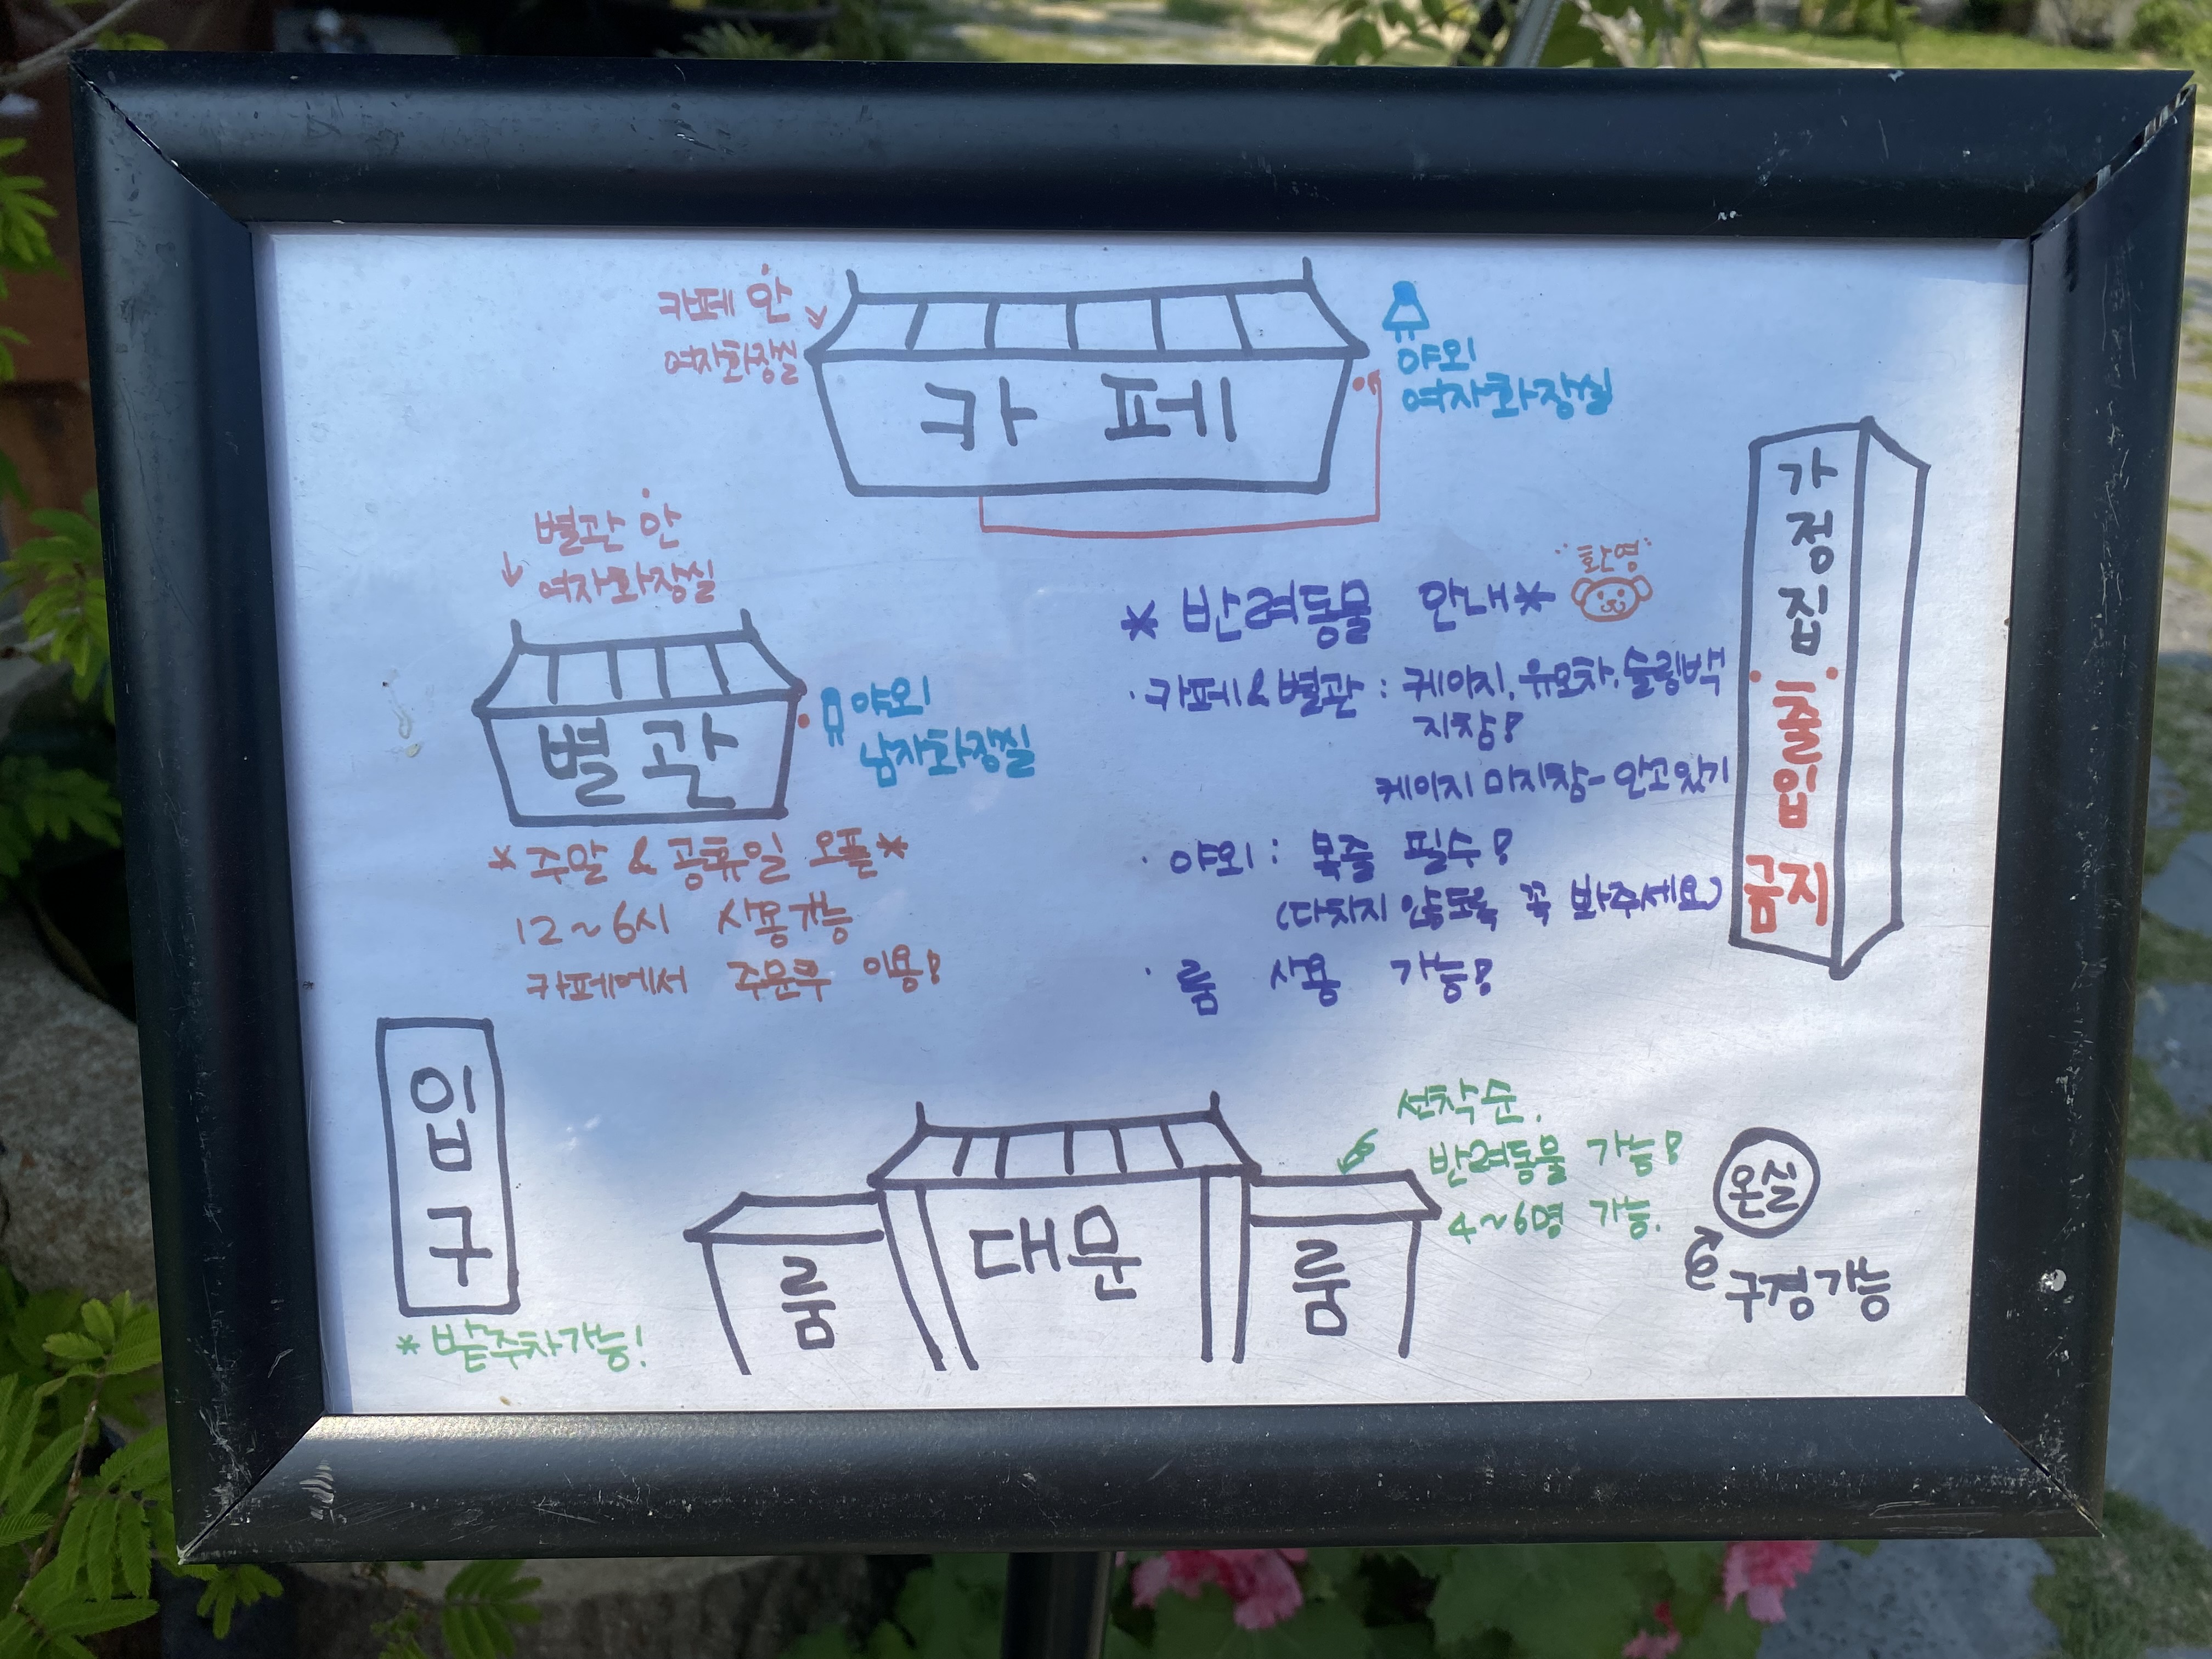 카페 안
여자화장실
카 페
야외
여자화장실
별관 안
여자화장실
별관
야외
남자화장실
* 주말 & 공휴일 오픈 *
12~6시 사용가능
카페에서 주문후 이용!
환영
* 반려동물 안내 *
· 카페 & 별관 : 케이지, 유모차, 슬링백
지참!
케이지 미지참 - 안고있기
· 야외 : 목줄 필수!
(다치지 않도록 꼭 봐주세요)
· 룸 사용 가능!
가정집
출입
금지
입구
* 밭주차가능!
룸
대문
룸
선착순.
반려동물 가능!
4~6명 가능.
온실
구경가능